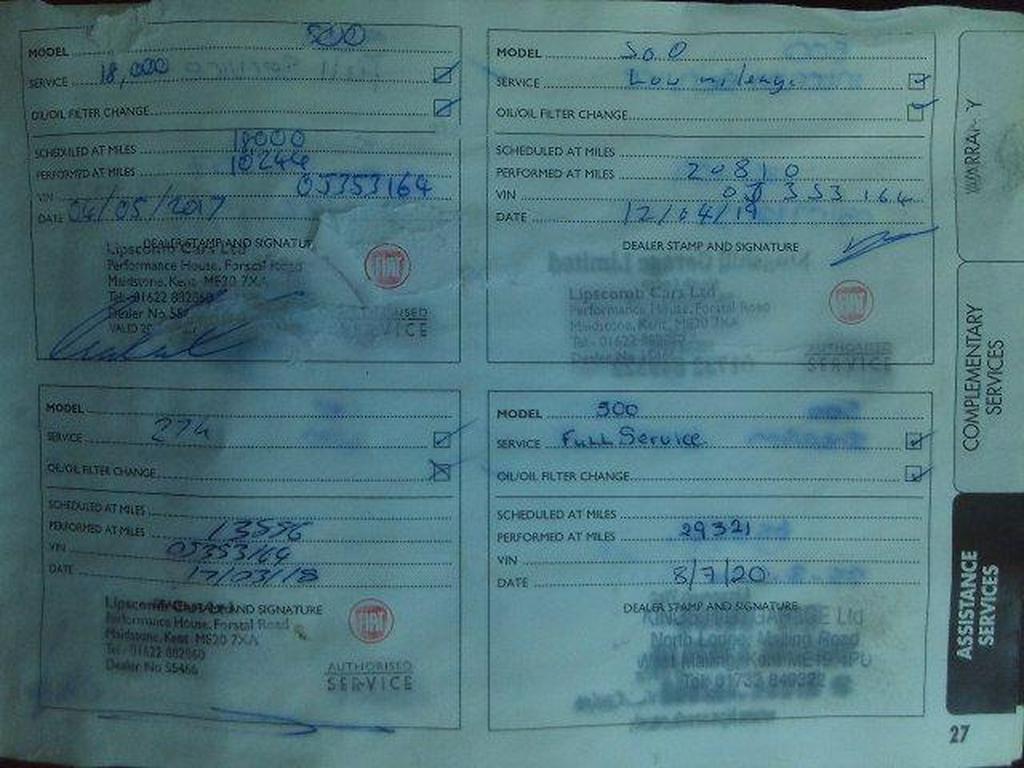 MODEL 500
SERVICE 18,000
OIL/OIL FILTER CHANGE
SCHEDULED AT MILES 18000
PERFORMED AT MILES 10244
VIN 05353164
DATE 04/05/2017
DEALER STAMP AND SIGNATURE
Lipscomb Cars Ltd
Performance House, Forstal Road
Maidstone, Kent ME20 7XA
Tel: 01622 882060
Dealer No
VALID
SERVICE
MODEL 500
SERVICE Low mileage
OIL/OIL FILTER CHANGE
SCHEDULED AT MILES
PERFORMED AT MILES 20810
VIN 05353164
DATE 12/04/19
DEALER STAMP AND SIGNATURE
Lipscomb Cars Ltd
Performance House, Forstal Road
Maidstone, Kent, ME20 7XA
Tel - 01622 882060
Dealer No
FIAT
AUTHORISED
SERVICE
MODEL
SERVICE
OIL/OIL FILTER CHANGE
SCHEDULED AT MILES
PERFORMED AT MILES 13596
VIN 05353164
DATE 17/03/18
DEALER STAMP AND SIGNATURE
Lipscomb Cars Ltd
Performance House, Forstal Road
Maidstone, Kent ME20 7XA
Tel: 01622 882060
Dealer No 55466
FIAT
AUTHORISED
SERVICE
MODEL 500
SERVICE Full Service
OIL/OIL FILTER CHANGE
SCHEDULED AT MILES
PERFORMED AT MILES 29321
VIN
DATE 8/7/20
DEALER STAMP AND SIGNATURE
GARAGE Ltd
North Malling Road
West Malling, Kent ME19
Tel: 01732 849322
WARRANTY
COMPLEMENTARY
SERVICES
ASSISTANCE
SERVICES
27